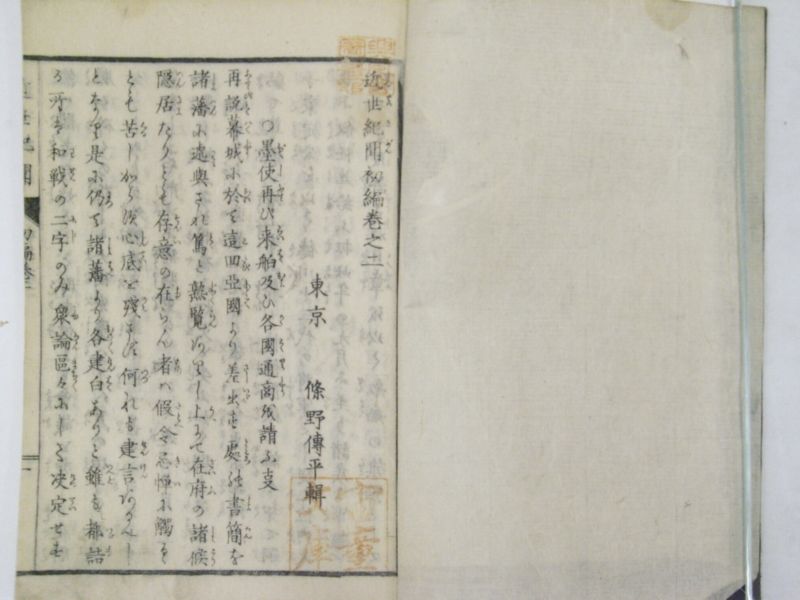 近世紀聞初編巻之二
東京 條野傳平輯
○墨使再び来舶及び各國通商を請ふ支
再説幕城に於て這回亞國より差出せる處の書簡を
諸藩に遞與され篤と熟覧ありし上にて在府の諸侯
隠居たりとも存意の在らん者ハ假令忌憚に觸るゝ
とも苦しからず心底を残さず何れも建言あるべし
となり是に仍て諸藩より各建白ありと雖も都詰
る所は和戦の二字のみ衆論區々にして決定せず
初編巻二